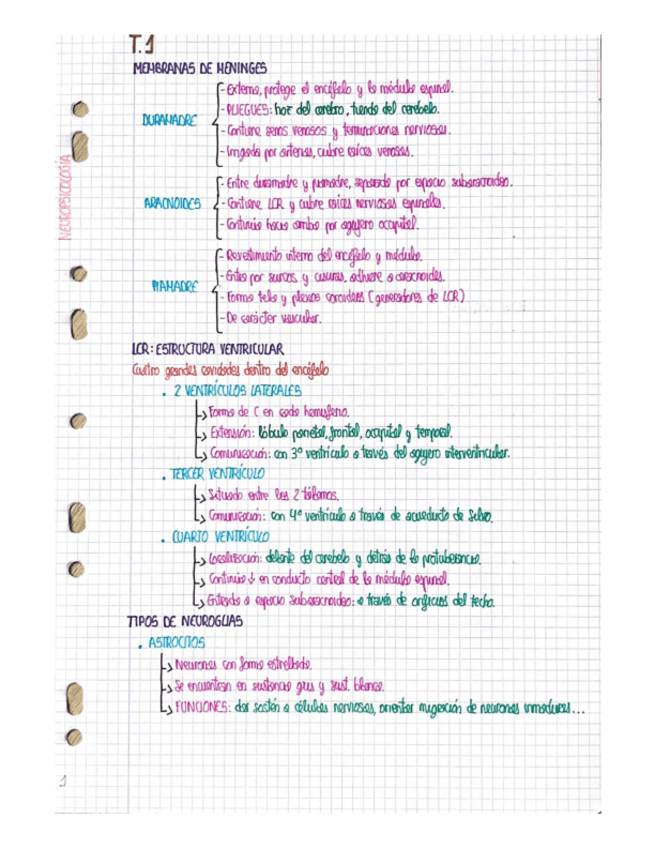 T.1
MEMBRANAS DE MENINGES
DURAMADRE
- Externa, protege el encéfalo y la médula espinal.
- PLIEGUES: hoz del cerebro, tienda del cerebelo.
- Contiene senos venosos y terminaciones nerviosas.
- Irrigada por arterias, cubre raíces venosas.
ARACNOIDES
- Entre duramadre y piamadre, separada por espacio subaracnoideo.
- Contiene LCR y cubre raíces nerviosas espinales.
- Continúa hacia ambos por agujero occipital.
PIAMADRE
- Revestimiento interno del encéfalo y médula.
- Entra por surcos y cisuras, adhiere a aracnoides.
- Forma tela y plexos coroideos (generadores de LCR)
- De carácter vascular.
NEUROPSICOLOGÍA
LCR: ESTRUCTURA VENTRICULAR
Cuatro grandes cavidades dentro del encéfalo
. 2 VENTRÍCULOS LATERALES
↳ Forma de C en cada hemisferio.
↳ Extensión: lóbulo parietal, frontal, occipital y temporal.
↳ Comunicación: con 3º ventrículo a través del agujero interventricular.
. TERCER VENTRÍCULO
↳ Situado entre los 2 tálamos.
↳ Comunicación: con 4º ventrículo a través de acueducto de Silvio.
. CUARTO VENTRÍCULO
↳ Localización: delante del cerebelo y detrás de la protuberancia.
↳ Continúa ↓ en conducto central de la médula espinal.
↳ Entrada a espacio subaracnoideo: a través de orificios del techo.
TIPOS DE NEUROGLIAS
. ASTROCITOS
↳ Neuronas con forma estrellada.
↳ Se encuentran en sustancia gris y sust. blanca.
↳ FUNCIONES: dar sostén a células nerviosas, orientar migración de neuronas inmaduras...
1